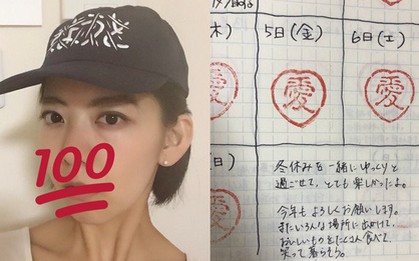 100
木)
5日(金)
6日(土)
愛
愛
愛
日)
愛
冬休みを一緒にゆっくりと
過ごせて、とても楽しかったよ。
今年もよろしくお願いします。
またいろんな場所に出かけて、
おいしいものをたくさん食べて、
笑って暮らそう。